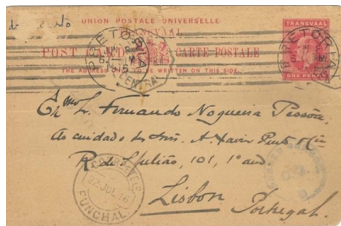 UNION POSTALE UNIVERSELLE
TRANSVAAL
POST CARTE-POSTALE
THE ADDRESS TO BE WRITTEN ON THIS SIDE.
PRETORIA
PRETORIA
ONE PENNY
Exmo. Sr. Fernando Nogueira Pessôa,
Ao cuidado do Snr. A. Xavier Pinto & Cia
R. de S. Julião, 101, 1º and.
Lisbon
Portugal.
22 JUL
FUNCHAL